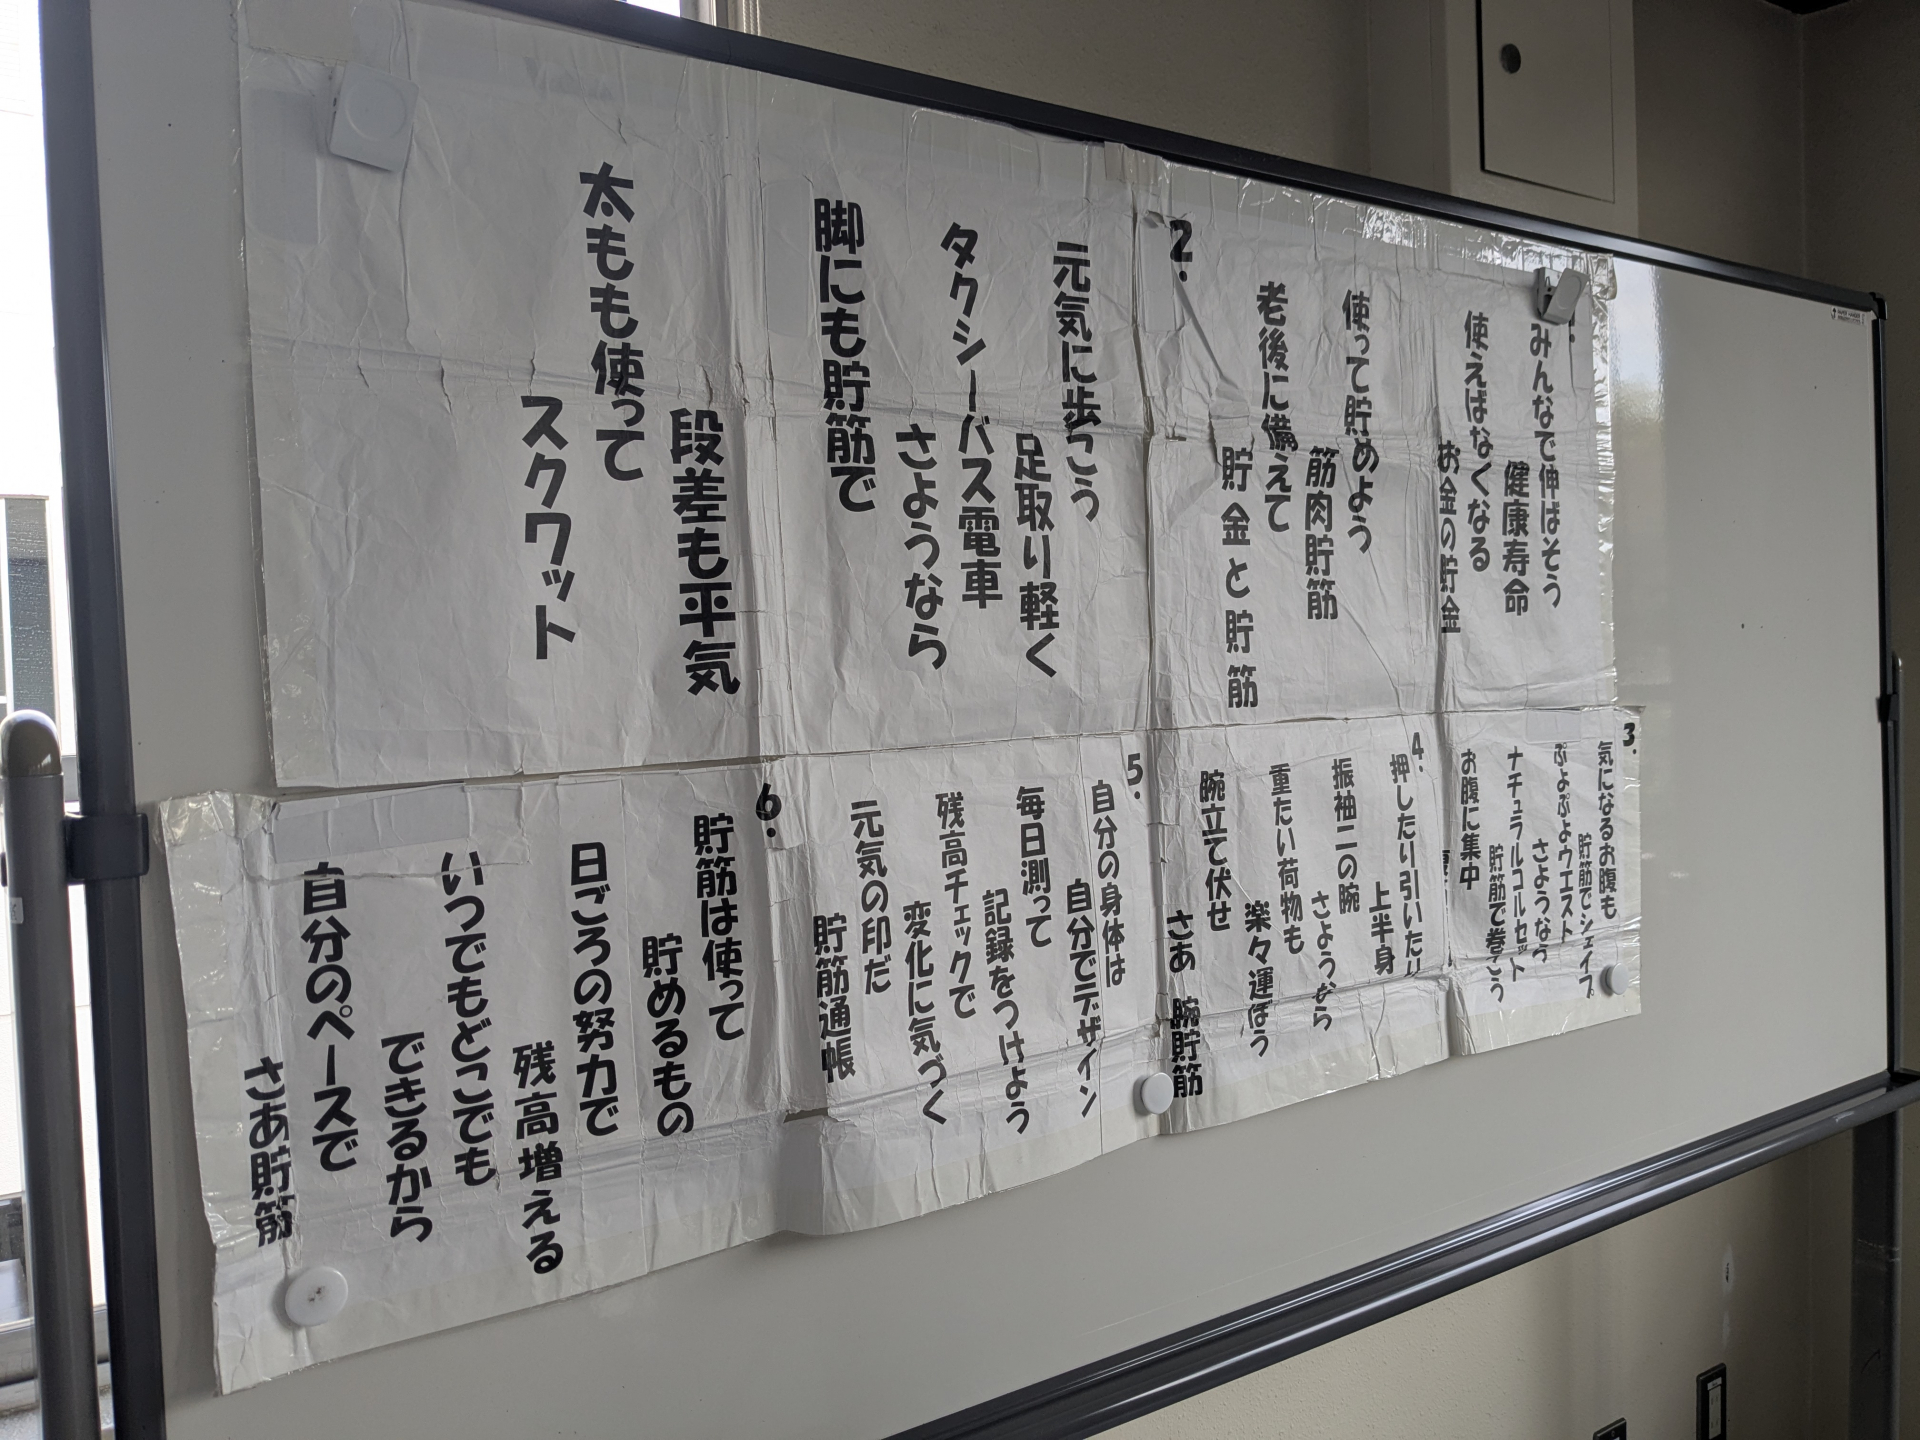 1.
みんなで伸ばそう
健康寿命
使えばなくなる
お金の貯金
使って貯めよう
筋肉貯筋
老後に備えて
貯金と貯筋
2.
元気に歩こう
足取り軽く
タクシーバス電車
さようなら
脚にも貯筋で
段差も平気
太もも使って
スクワット
3.
気になるお腹も
貯筋でシェイプ
ぷよぷよウエスト
さようなら
ナチュラルコルセット
貯筋で巻こう
お腹に集中
4.
押したり引いたり
上半身
振袖二の腕
さようなら
重たい荷物も
楽々運ぼう
腕立て伏せ
さあ 腕貯筋
5.
自分の身体は
自分でデザイン
毎日測って
記録をつけよう
残高チェックで
変化に気づく
元気の印だ
貯筋通帳
6.
貯筋は使って
貯めるもの
日ごろの努力で
残高増える
いつでもどこでも
できるから
自分のペースで
さあ貯筋